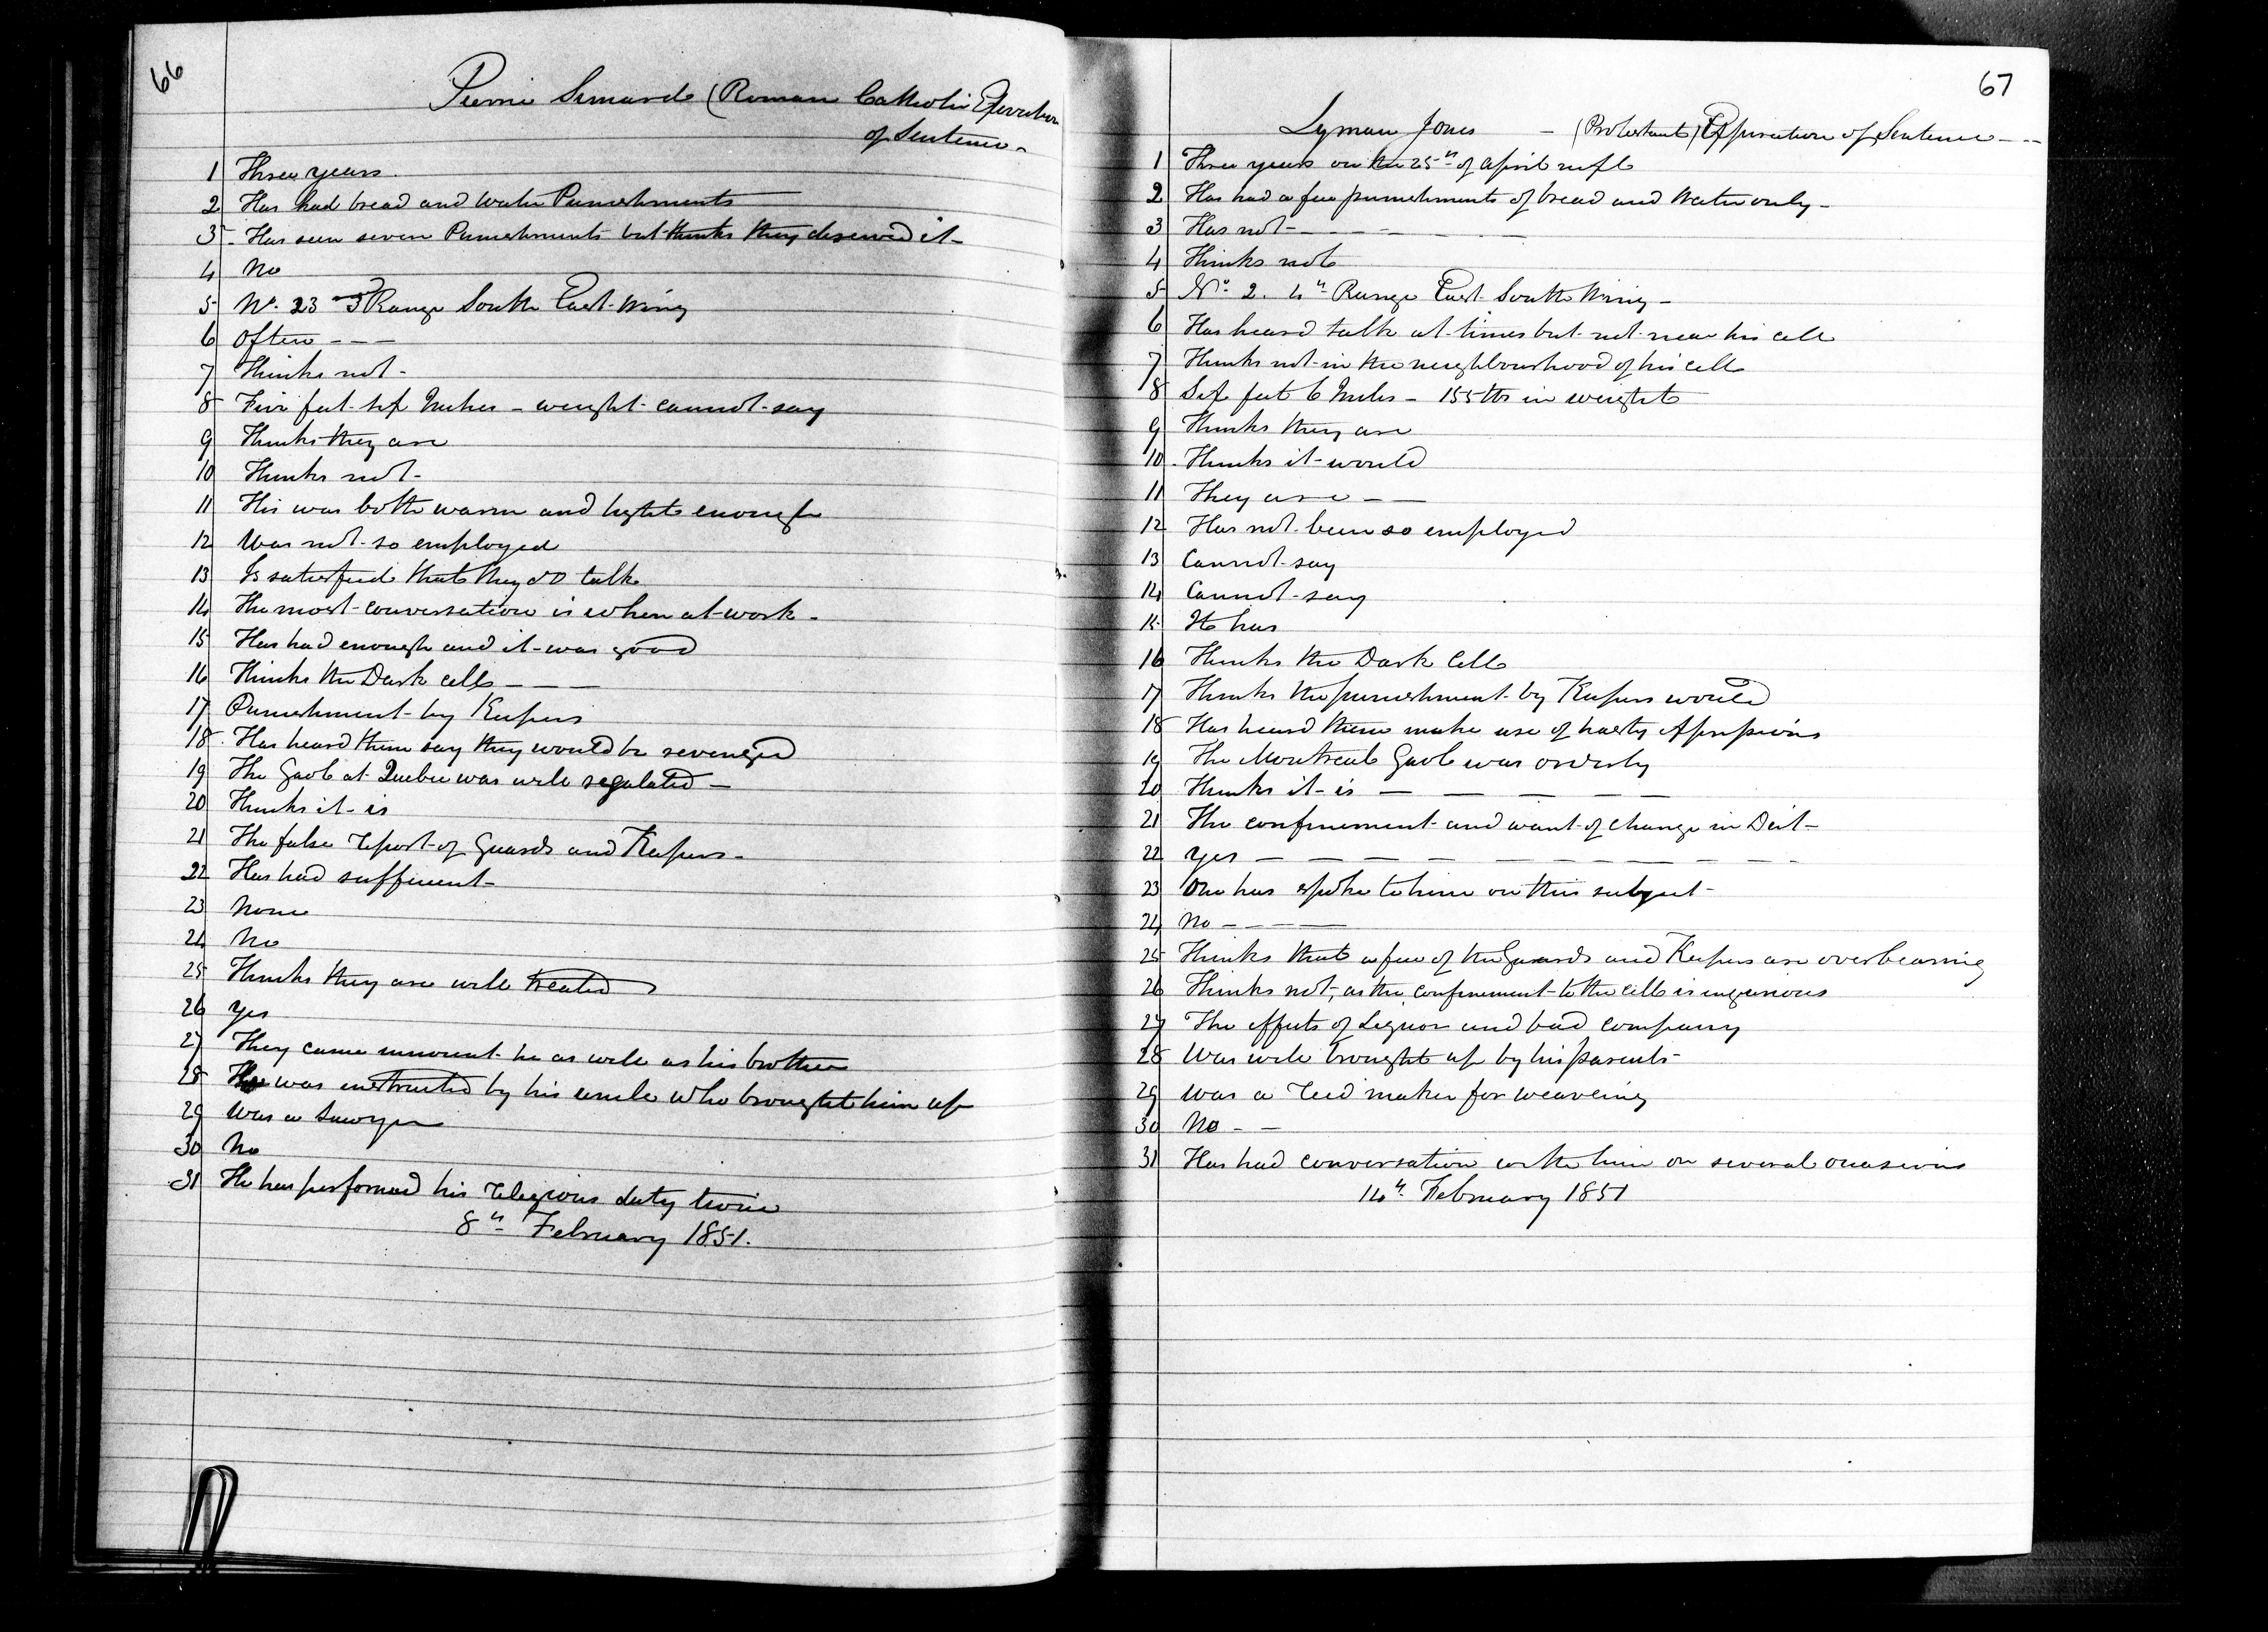 66
Pierre Simard (Roman Catholic Expiration
of Sentence -
1 Three years
2 Has had bread and water Punishments
3 - Has seen severe Punishments but thinks they deserved it -
4 No
5 No. 23 3 Range South East Wing
6 Often - - -
7 Thinks not -
8 Five feet six Inches - weight cannot say
9 Thinks they are
10 Thinks not -
11 His was both warm and light enough
12 Was not so employed
13 Is satisfied that they do talk
14 The most conversation is when at work -
15 Has had enough and it was good
16 Thinks the Dark cell - - -
17 Punishment by Keepers
18 - Has heard them say they would be revenged
19 The Gaol at Quebec was well regulated -
20 Thinks it is
21 The false report of Guards and Keepers -
22 Has had sufficient -
23 None
24 No
25 Thinks they are well treated
26 Yes
27 They came innocent he as well as his brother
28 He was instructed by his uncle who brought him up
29 Was a Sawyer
30 No
31 He has performed his religious duty twice
8th February 1851.
67
Lyman Jones - (Protestant) Expiration of Sentence - - -
1 Three years on the 25th of april next
2 Has had a few punishments of bread and Water only -
3 Has not - - - - - -
4 Thinks not
5 No. 2. 4th Range East South Wing -
6 Has heard talk at times but not near his cell
7 Thinks not in the neighbourhood of his cell
8 Six feet 6 Inches - 155 lbs in weight
9 Thinks they are
10 - Thinks it would
11 They are - -
12 Has not been so employed
13 Cannot say
14 Cannot say
15 It has
16 Thinks the Dark Cell
17 Thinks the punishment by Keepers would
18 Has heard them make use of hasty expressions
19 The Montreal Gaol was orderly
20 Thinks it is - - - - -
21 The confinement and want of change in Diet -
22 Yes - - - - - - - - -
23 One has spoke to him on this subject -
24 No - - - -
25 Thinks that a few of the Guards and Keepers are overbearing
26 Thinks not, as the confinement to the cell is injurious
27 The effects of Liquor and bad company
28 Was well brought up by his parents -
29 Was a reed maker for weaveing
30 No - -
31 Has had conversation with him on several occasions
14th February 1851